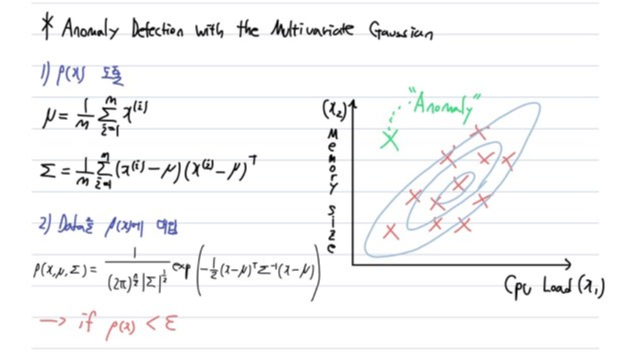 * Anomaly Detection with the Multivariate Gaussian
1) p(x) 도출
μ = 1/m Σ_{i=1}^{m} x^{(i)}
Σ = 1/m Σ_{i=1}^{m} (x^{(i)} - μ)(x^{(i)} - μ)^T
2) Data을 p(x)에 대입
p(x,μ,Σ) = 1/((2π)^{n/2}|Σ|^{1/2}) exp(-1/2(x-μ)^T Σ^{-1}(x-μ))
→ if p(x) < ε
"Anomaly"
(x₂)
Memory size
Cpu Load (x₁)